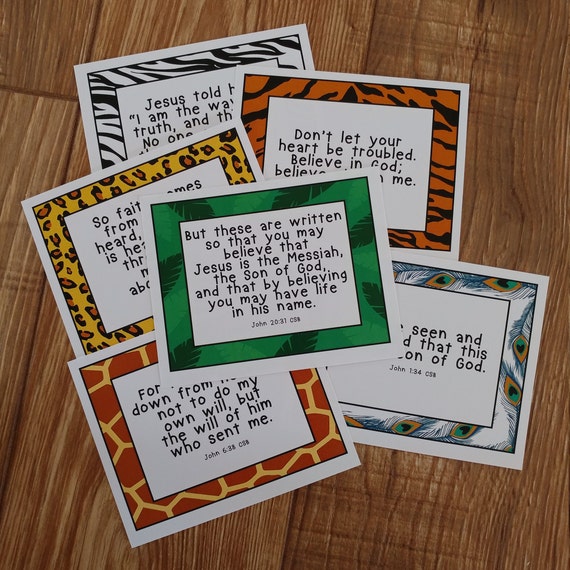 Jesus told
"I am the way
truth, and
No one
Don't let your
heart be troubled.
Believe in God;
me.
So
from
heard,
is
But these are written
so that you may
believe that
Jesus is the Messiah,
the Son of God,
and that by believing
you may have life
in his name.
John 20:31 CSB
seen and
that this
Son of God.
John 1:34 CSB
For
down from
not to do my
own will, but
the will of him
who sent me.
John 6:38 CSB